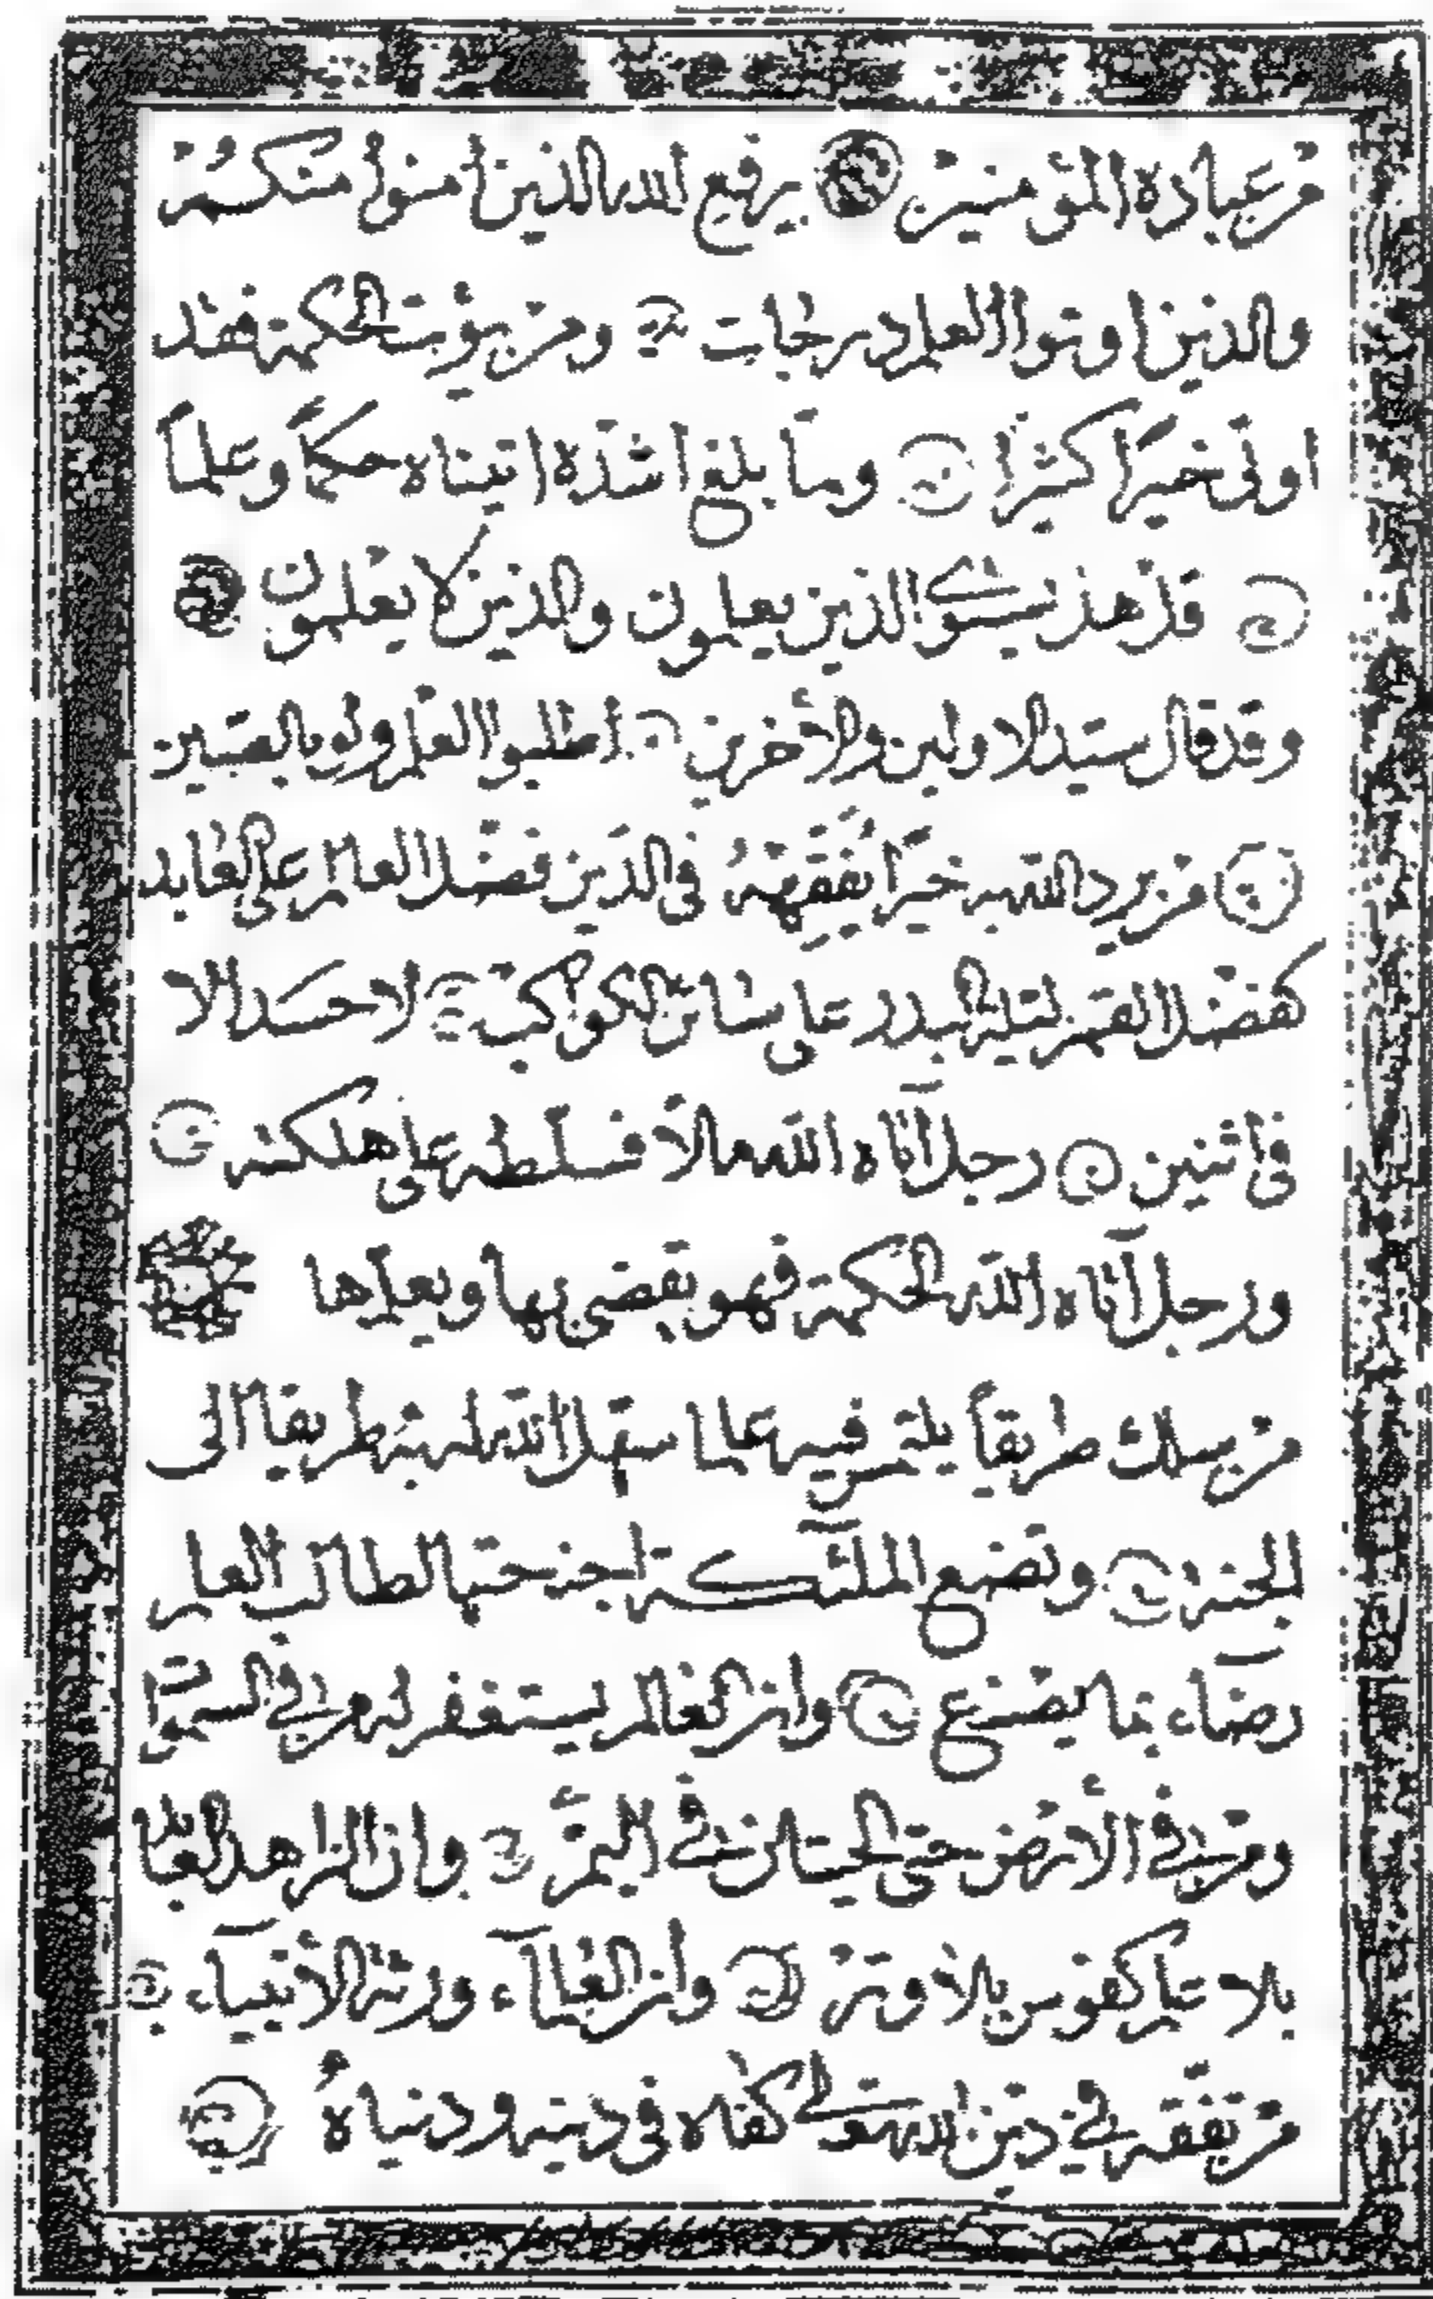 من عباده المؤمنين يرفع الله الذين أمنوا منكم
والذين اوتوا العلم درجات ومن يؤت الحكمة فقد
اوتى خيرًا كثيرًا ولما بلغ اشدّه اتيناه حكمًا وعلمًا
قل هل يستوي الذين يعلمون والذين لا يعلمون
وقد قال سيد الاولين والأخرين أطلبوا العلم ولو بالصين
من يرد الله به خيرًا يُفَقِّههُ في الدّين فضل العالم على العابد
كفضل القمر ليلة البدر على سائر الكواكب لا حسد الا
في اثنين رجل آتاه الله مالاً فسلّطه على هلكته
ورجل آتاه الله الحكمة فهو يقضى بها ويعلمها
من يسلك طريقاً يلتمس فيه علما سهّل الله له به طريقا الى
الجنة وتضع الملئكة اجنحتها لطالب العلم
رضاء بما يصنع وان العالم ليستغفر له من في السموا
ومن في الأرض حتى الحيتان في اليمّ وان الزاهد العابد
بلا علم كقوس بلا وتر وأن العلمآء ورثة الأنبيآء
من تفقّه في دين الله تعالى كفاه في دينه ودنياهُ